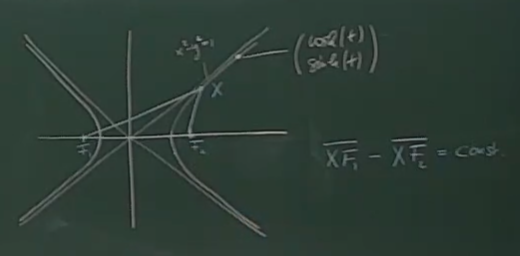 x²-y²=1
(cosh(t)
sinh(t))
X
F₁
F₂
XF₁ - XF₂ = const.